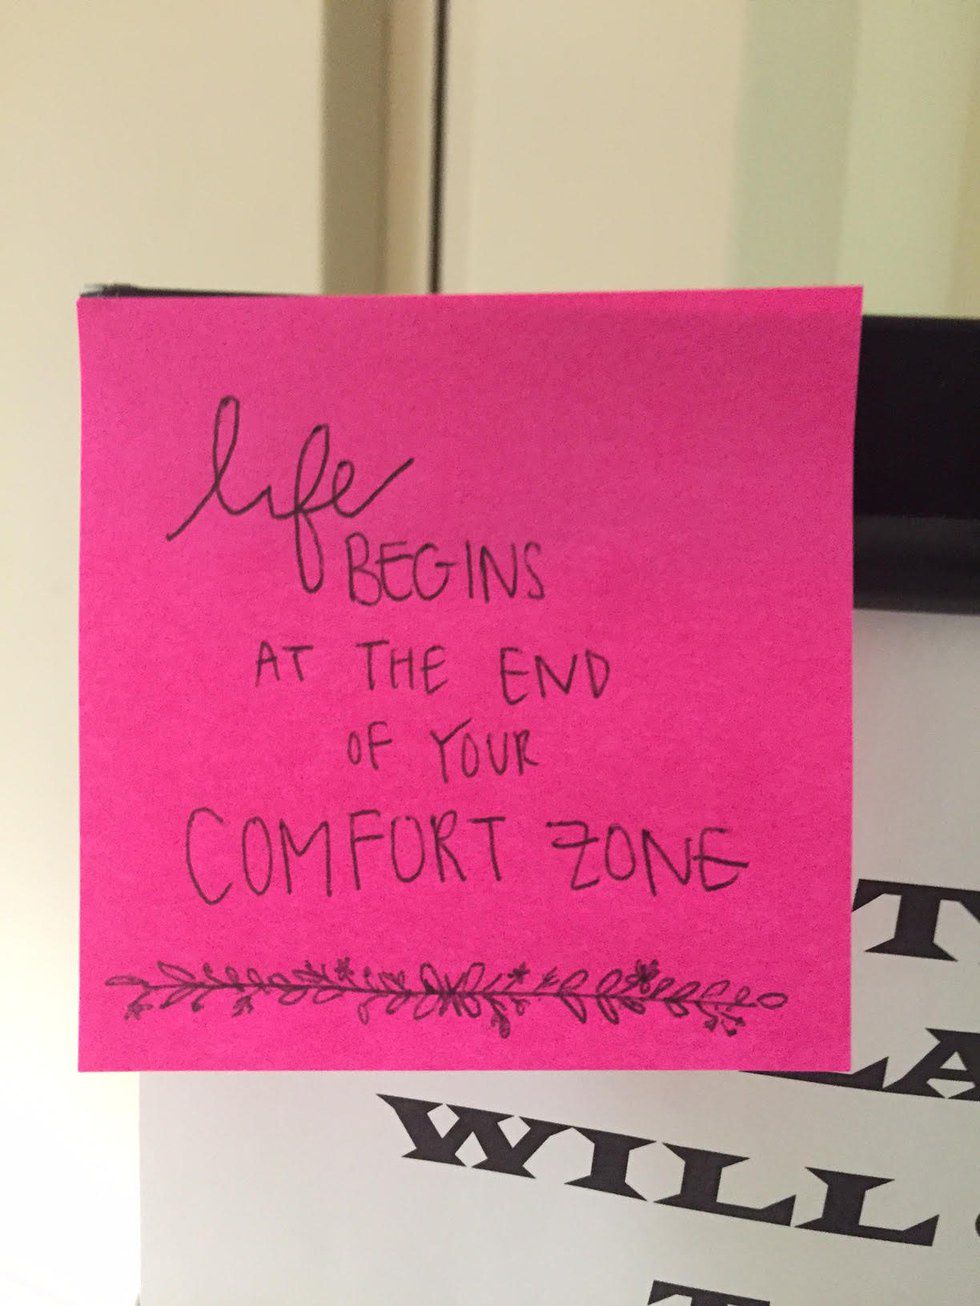 life
BEGINS
AT THE END
OF YOUR
COMFORT ZONE
WILL